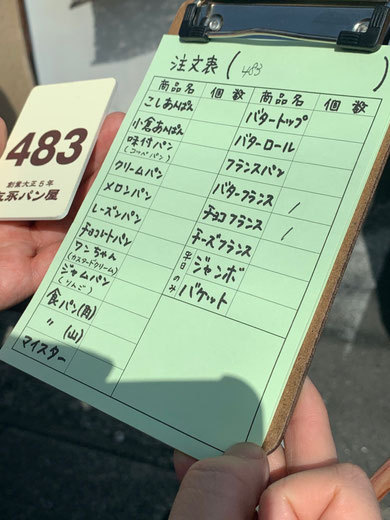 注文表 ( 483 )
商品名 個数 商品名 個数
こしあんぱん バタートップ
小倉あんぱん バターロール
味付パン フランスパン
(コッペパン)
クリームパン バターフランス /
メロンパン チョコフランス /
レーズンパン チーズフランス
チョコレートパン 平日のみ ジャンボ
ワンちゃん バケット
(カスタードクリーム)
ジャムパン
(りんご)
食パン(角)
〃 (山)
マイスター
483
創業大正5年
パン屋